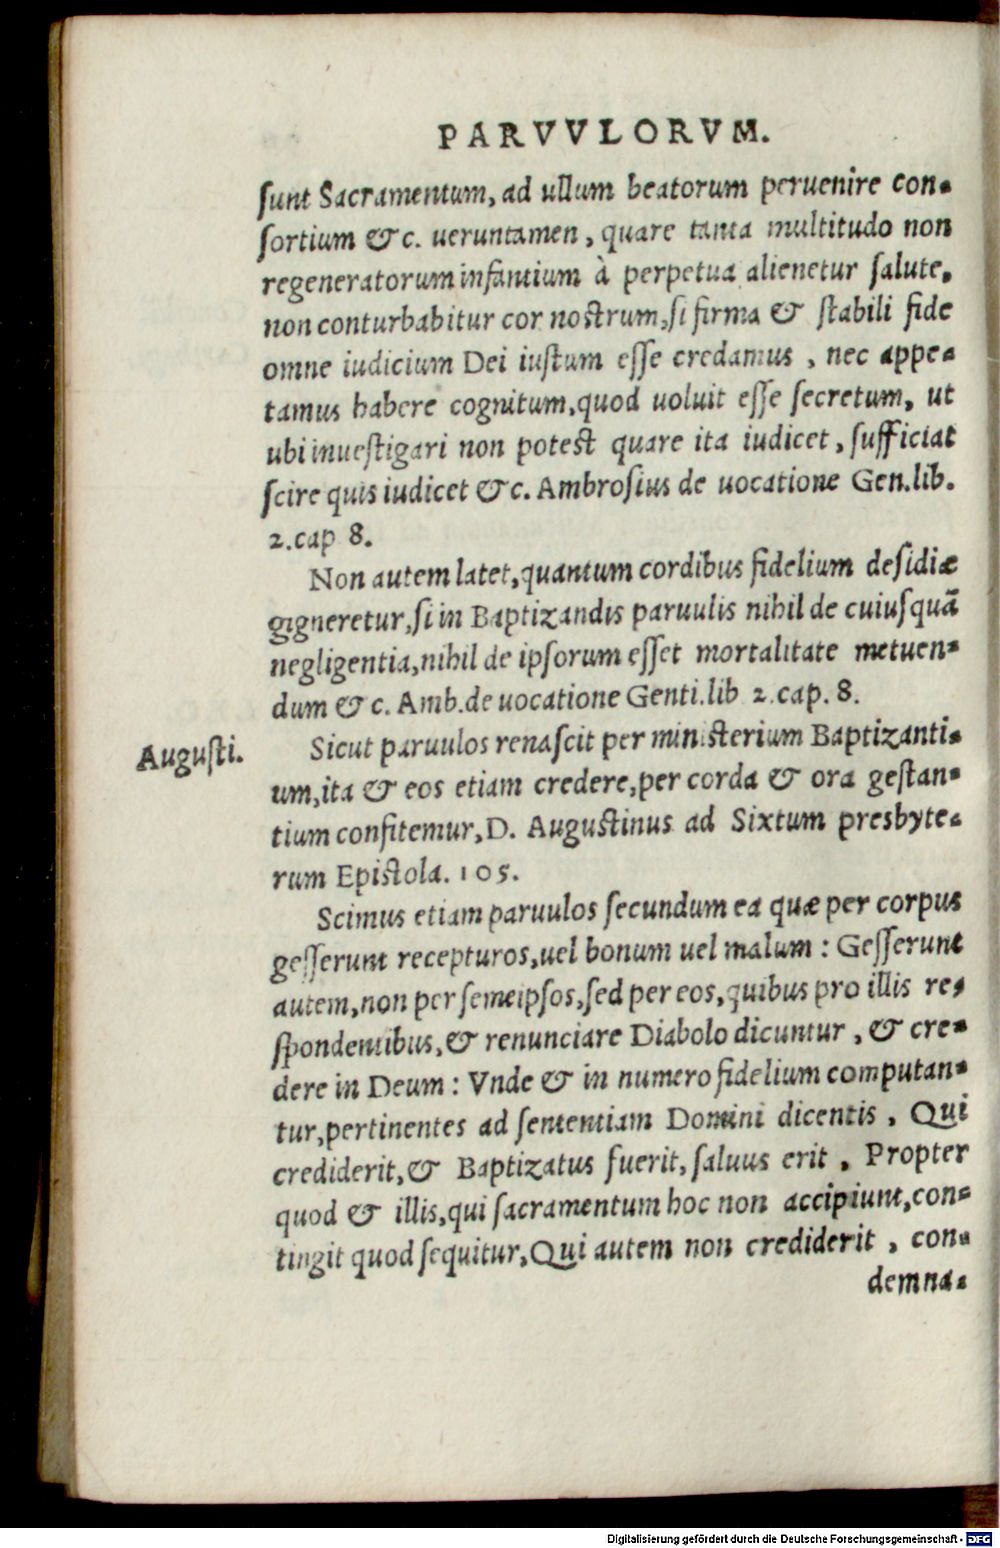 PARVVLORVM.
sunt Sacramentum, ad ullum beatorum peruenire con-
sortium &c. ueruntamen, quare tanta multitudo non
regeneratorum infantium à perpetua alienetur salute,
non conturbabitur cor nostrum, si firma & stabili fide
omne iudicium Dei iustum esse credamus, nec appe-
tamus habere cognitum, quod uoluit esse secretum, ut
ubi inuestigari non potest quare ita iudicet, sufficiat
scire quis iudicet &c. Ambrosius de uocatione Gen. lib.
2. cap 8.
Non autem latet, quantum cordibus fidelium desidiæ
gigneretur, si in Baptizandis paruulis nihil de cuiusquã
negligentia, nihil de ipsorum esset mortalitate metuen-
dum & c. Amb. de uocatione Genti. lib 2. cap. 8.
Augusti.
Sicut paruulos renascit per ministerium Baptizanti-
um, ita & eos etiam credere, per corda & ora gestan-
tium confitemur, D. Augustinus ad Sixtum presbyte-
rum Epistola. 105.
Scimus etiam paruulos secundum ea quæ per corpus
gesserunt recepturos, uel bonum uel malum: Gesserunt
autem, non per semeipsos, sed per eos, quibus pro illis re-
spondentibus, & renunciare Diabolo dicuntur, & cre-
dere in Deum: Vnde & in numero fidelium computan-
tur, pertinentes ad sententiam Domini dicentis, Qui
crediderit, & Baptizatus fuerit, saluus erit, Propter
quod & illis, qui sacramentum hoc non accipiunt, con-
tingit quod sequitur, Qui autem non crediderit, con-
demna-
Digitalisierung gefördert durch die Deutsche Forschungsgemeinschaft - DFG